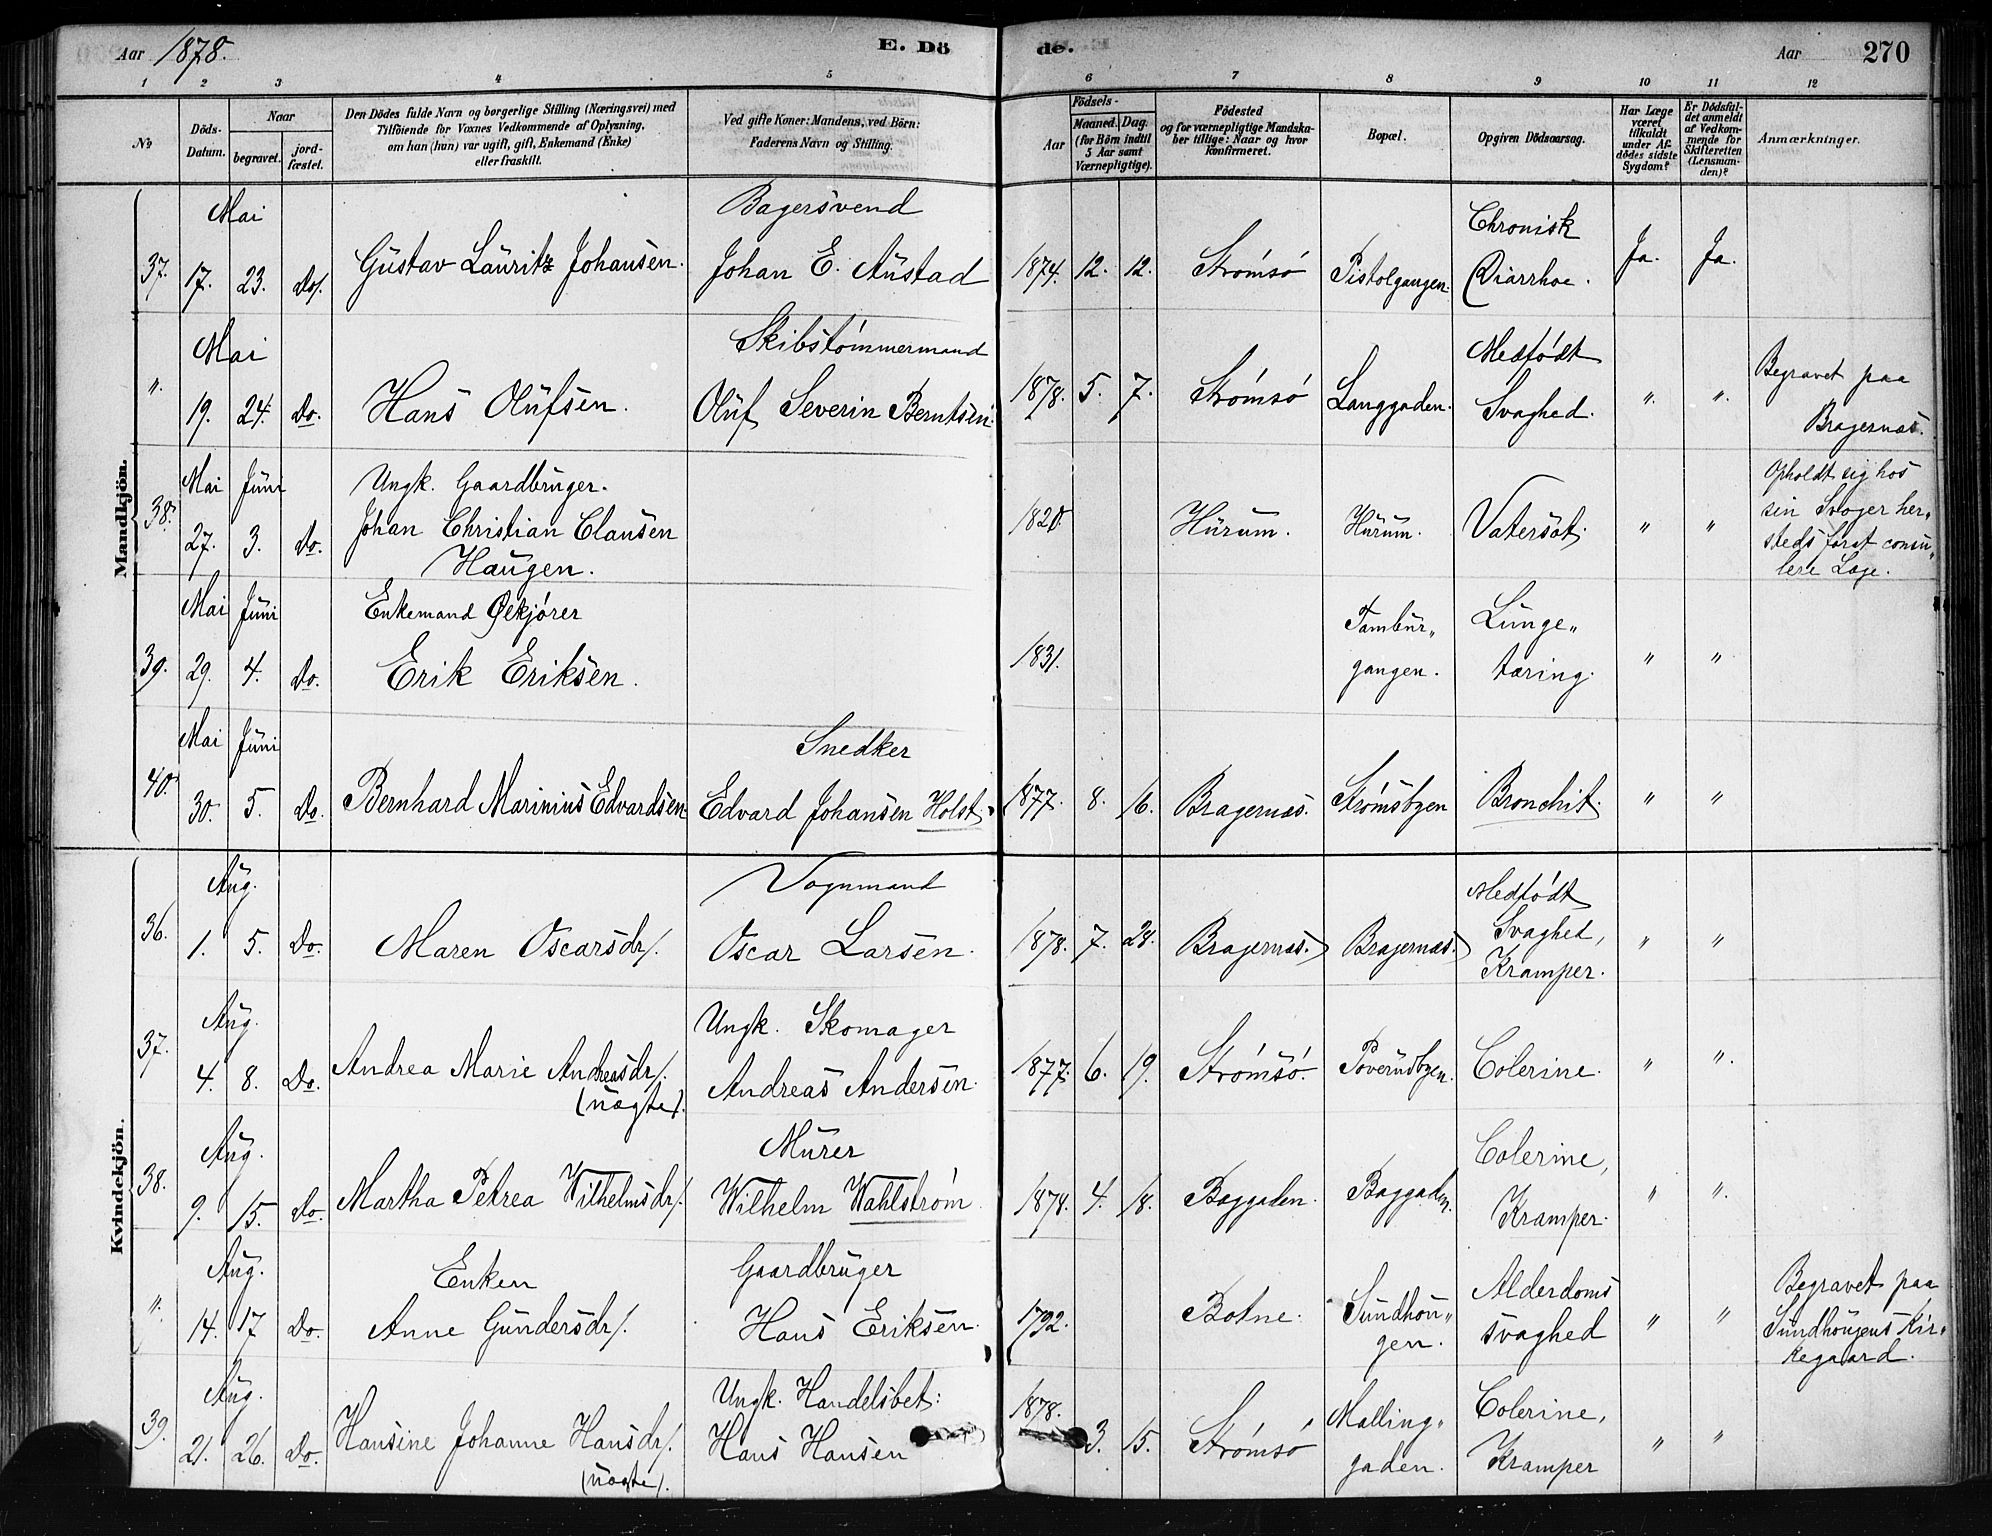 Aar 1878. E. Dö de. Aar 270
1 2 3 4 5 6 7 8 9 10 11 12
No.
Döds-
Datum.
Naar
begravet.
jord-
fæstet.
Den Dödes fulde Navn og borgerlige Stilling (Næringsvei) med
Tilföiende for Voxnes Vedkommende af Oplysning,
om han (hun) var ugift, gift, Enkemand (Enke)
eller fraskilt.
Ved gifte Koner: Mandens, ved Börn:
Faderens Navn og Stilling.
Födsels-
Aar
Maaned. Dag.
(for Börn indtil
5 Aar samt
Værnepligtige).
Födested
og for værnepligtige Mandska-
ber tillige: Naar og hvor
konfirmeret.
Bopæl.
Opgiven Dödsaarsag.
Har Læge
været
tilkaldt
under Af-
dödes sidste
Sygdom?
Er Dödsfal-
det anmeldt
af Vedkom-
mende for
Skifteretten
(Lensman-
den)?
Anmærkninger.
Mandkjön.
Mai Bagersvend Chronisk
37. 17. 23. Do. Gustav Lauritz Johansen. Johan E. Austad 1874. 12. 12. Strömsö Pistolgangen. Diarrhoe. Ja. Ja.
Mai Skibstömmermand Medfödt Begravet paa
". 19. 24. Do. Hans Olufsen. Oluf Severin Berntsen. 1878. 5. 7. Strömsö Langgaden. Svaghed. ". ". Bragernæs.
Mai Juni Ungk. Gaardbruger. Opholdt sig hos
38. 27. 3. Do. Johan Christian Clausen 1820. Hurum. Hurum. Vatersot. " " sin Svoger her-
Haugen. steds forat consu-
lere Læge.
Mai Juni Enkemand Ölkjörer Tambur- Lunge-
39. 29. 4. Do. Erik Eriksen. 1831. gangen. tæring. " "
Mai Juni Snedker
40. 30. 5. Do. Bernhard Marinius Edvardsen Edvard Johansen Holst. 1877. 8. 16. Bragernæs. Strömsbyen Bronchit. " "
Kvindekjön.
Aug. Vognmand Medfödt
36. 1. 5. Do. Maren Oscarsdr/. Oscar Larsen. 1878. 7. 28. Bragernæs. Bragernæs. Svaghed, " "
Kramper.
Aug. Ungk. Skomager
37. 4. 8. Do. Andrea Marie Andreasdr/. Andreas Andersen. 1877. 6. 19. Strömsö. Poverudbyen. Colerine. " ".
(uægte).
Aug. Murer Colerine,
38. 9. 15. Do. Martha Petrea Wilhelmsdr/. Wilhelm Wahlström. 1878. 4. 18. Baggaden. Baggaden. Kramper. " ".
Aug. Enken Gaardbruger Alderdoms Begravet paa
". 14. 17 Do. Anne Gundersdr/. Hans Eriksen. 1792. Botne. Sundhou- svaghed " " Sundhougens Kir-
gen. kegaard.
Aug. Ungk. Handelsbet: 1878. Malling- Colerine,
39. 21. 26. Do. Hansine Johanne Hansdr/. Hans Hansen 3. 15. Strömsö gaden. Kramper " "
(uægte).